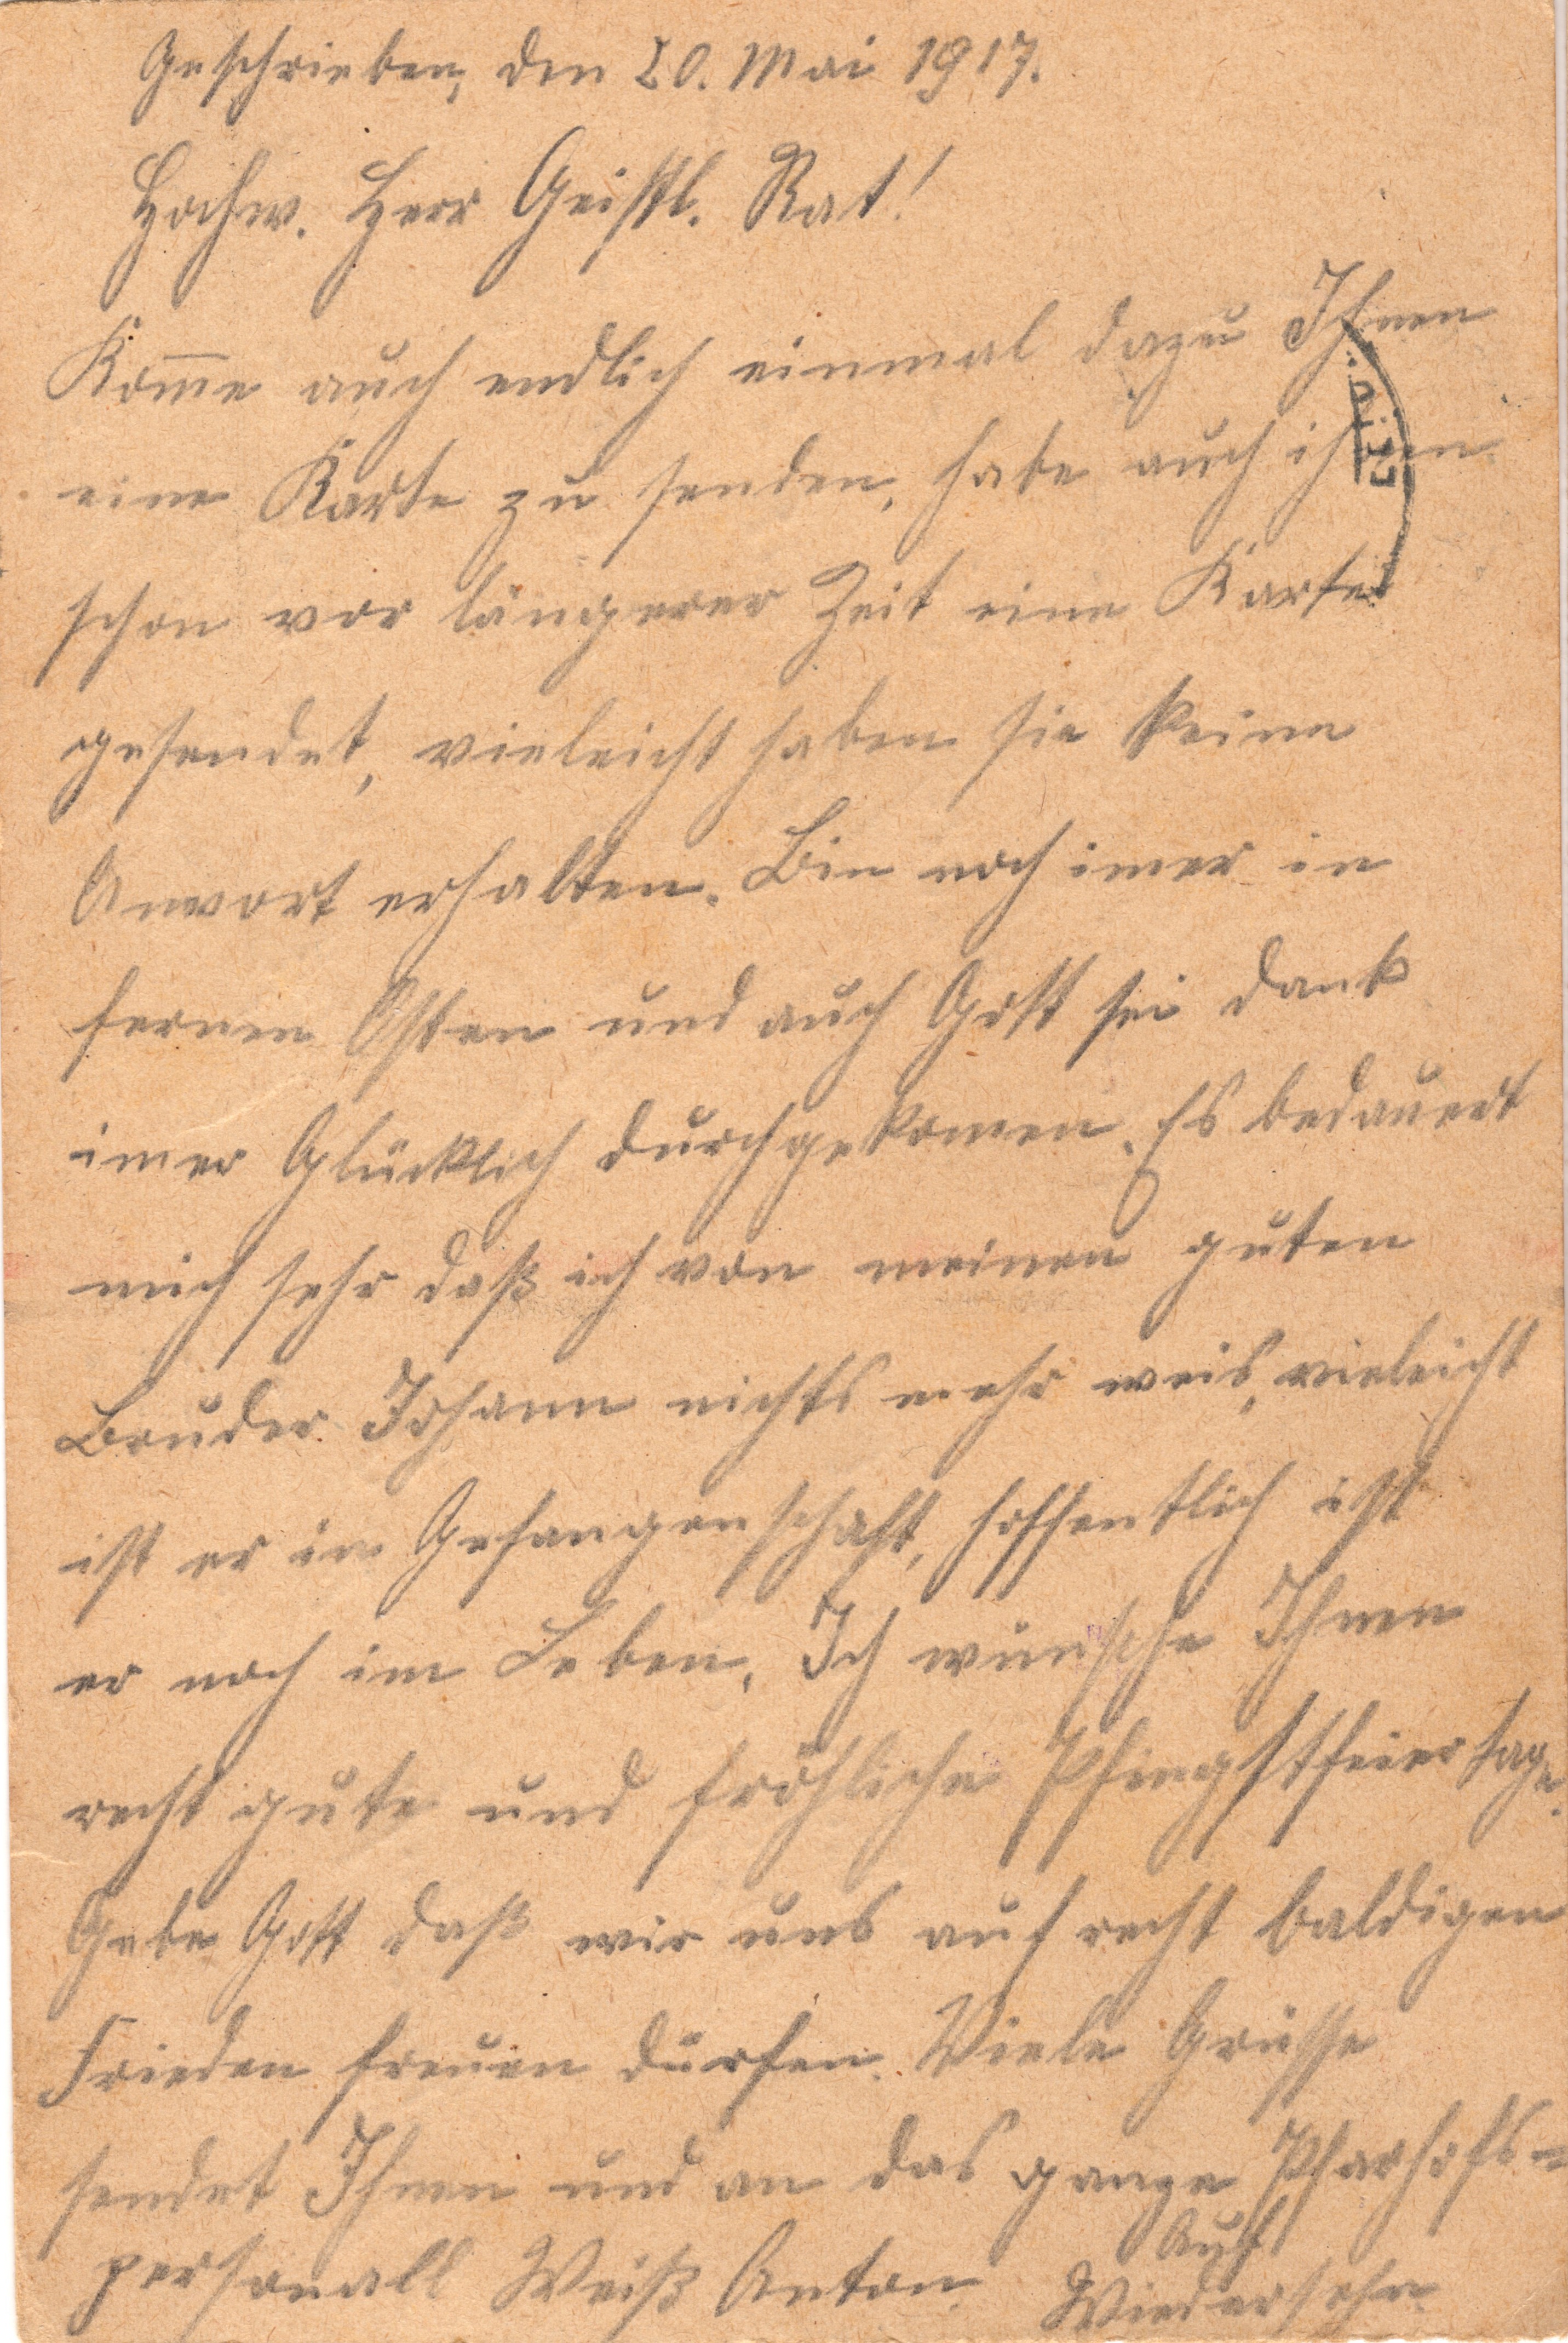 Geschrieben, den 20. Mai 1917.
Hochw. Herr Geistl. Rat!
Kom̄e auch endlich einmal dazu Ihnen
eine Karte zu senden, habe auch ihnen
schon vor längerer Zeit eine Karte
gesendet, vieleicht haben sie keine
Anwort erhalten. Bin noch imer in
fernen Osten und auch Gott sei dank
imer Glücklich durchgekomen. Es bedauert
mich sehr daß ich von meinen guten
Bruder Johann nichts mehr weis, vieleicht
ist er in Gefangenschaft, hoffentlich ist
er noch im Leben. Ich wünsche Ihnen
recht gute und fröhliche Pfingstfeiertage.
Gebe Gott daß wir uns auf recht baldigen
Frieden freuen dürfen. Viele Grüsse
sendet Ihnen und an das ganze Pfarhofs-
personall Weiß Anton. Auf
Wiedersehn.